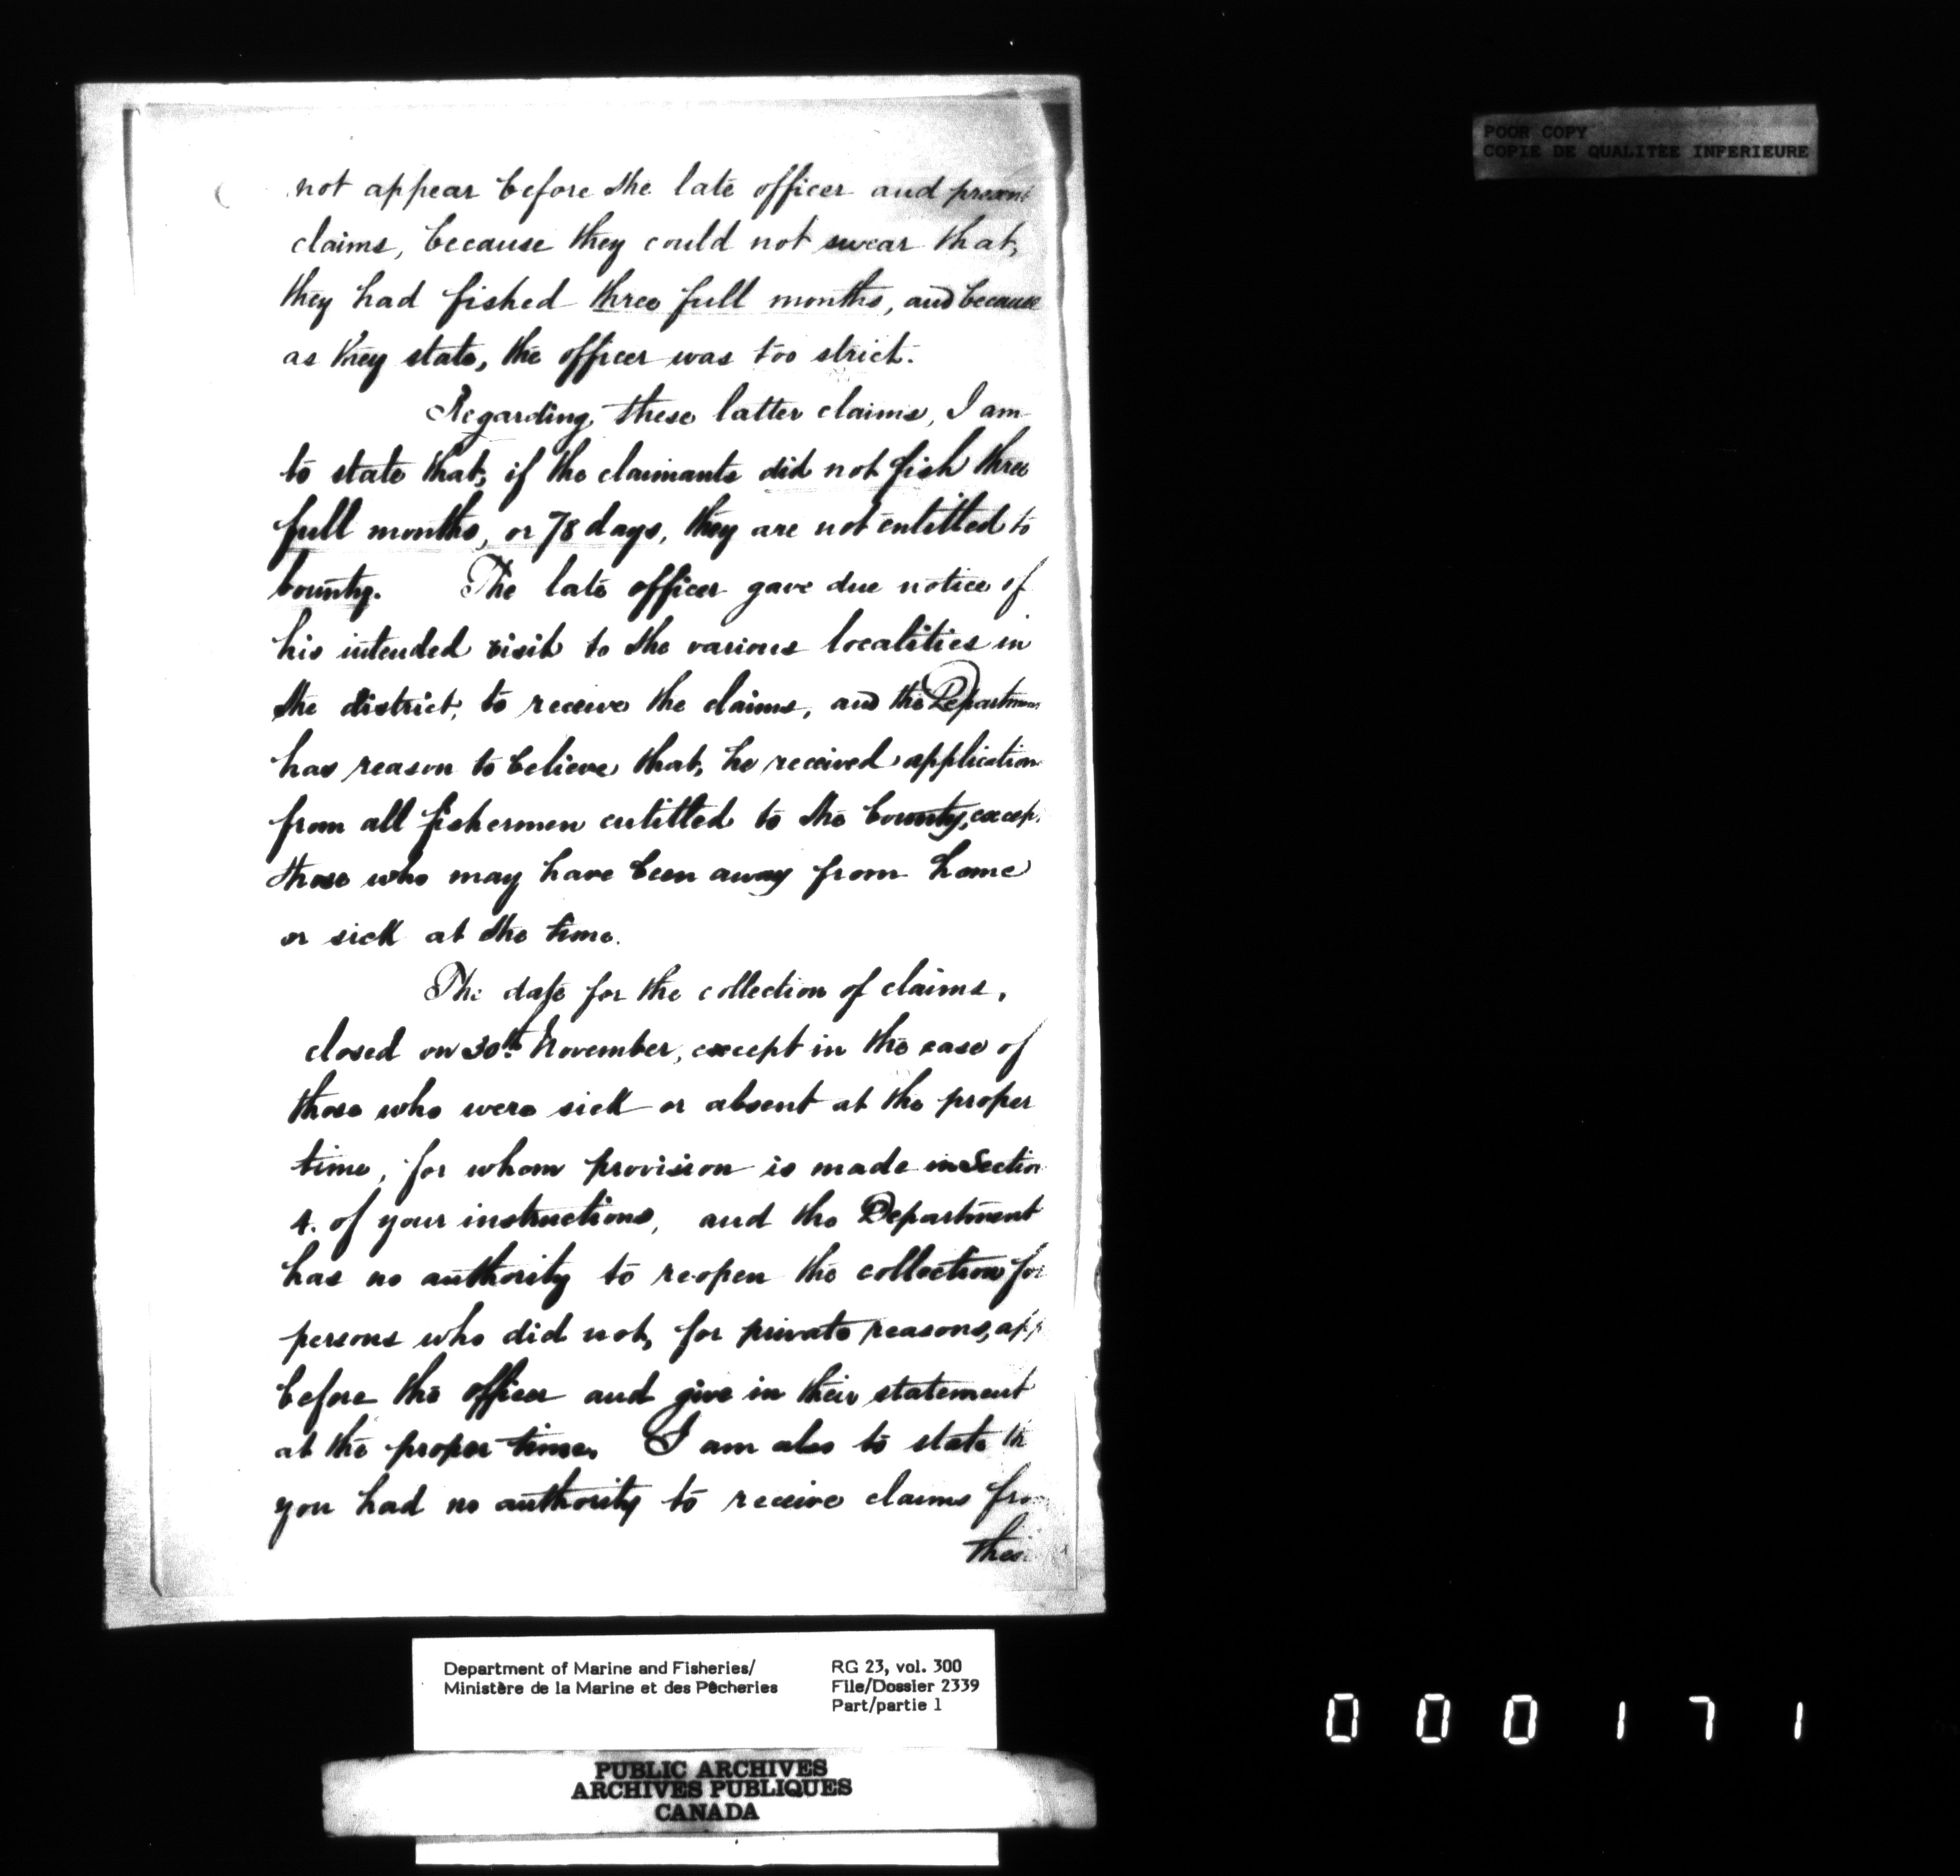 POOR COPY
COPIE DE QUALITEE INFERIEURE
not appear before the late officer and
claims, because they could not swear that,
they had fished three full months, and because
as they state, the officer was too strict.
Regarding these latter claims, I am
to state that, if the claimants did not fish three
full months, or 78 days, they are not entitled to
bounty. The late officer gave due notice of
his intended visit to the various localities in
the district, to receive the claims, and the Departmen
has reason to believe that, he received application
from all fishermen entitled to the bounty, excep
those who may have been away from home
or sick at the time.
The date for the collection of claims,
closed on 30th November, except in the case of
those who were sick or absent at the proper
time, for whom provision is made in Section
4. of your instructions, and the Department
has no authority to reopen the collection for
persons who did not, for private reasons, app
before the officer and give in their statement
at the proper time. I am also to state th
you had no authority to receive claims fro
thes
Department of Marine and Fisheries/
Ministère de la Marine et des Pêcheries
RG 23, vol. 300
File/Dossier 2339
Part/partie 1
PUBLIC ARCHIVES
ARCHIVES PUBLIQUES
CANADA
000171